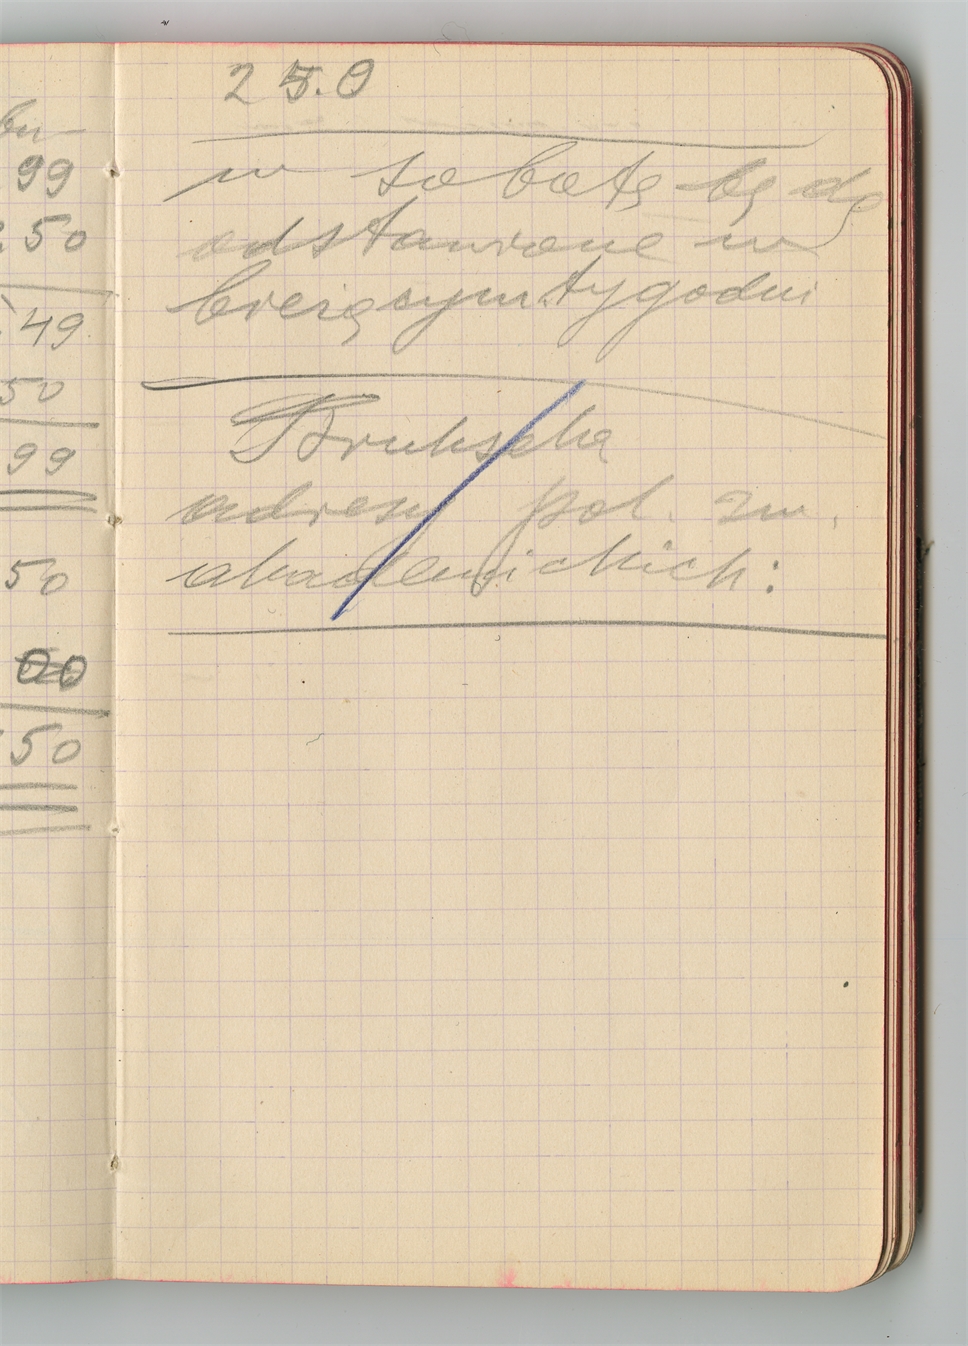 bu-
99
50
49
50
99
50
00
50
25.0
w sobotę będę
odstawione w
bieżącym tygodni
Brukselka
adresy pol. zw.
akademickich: